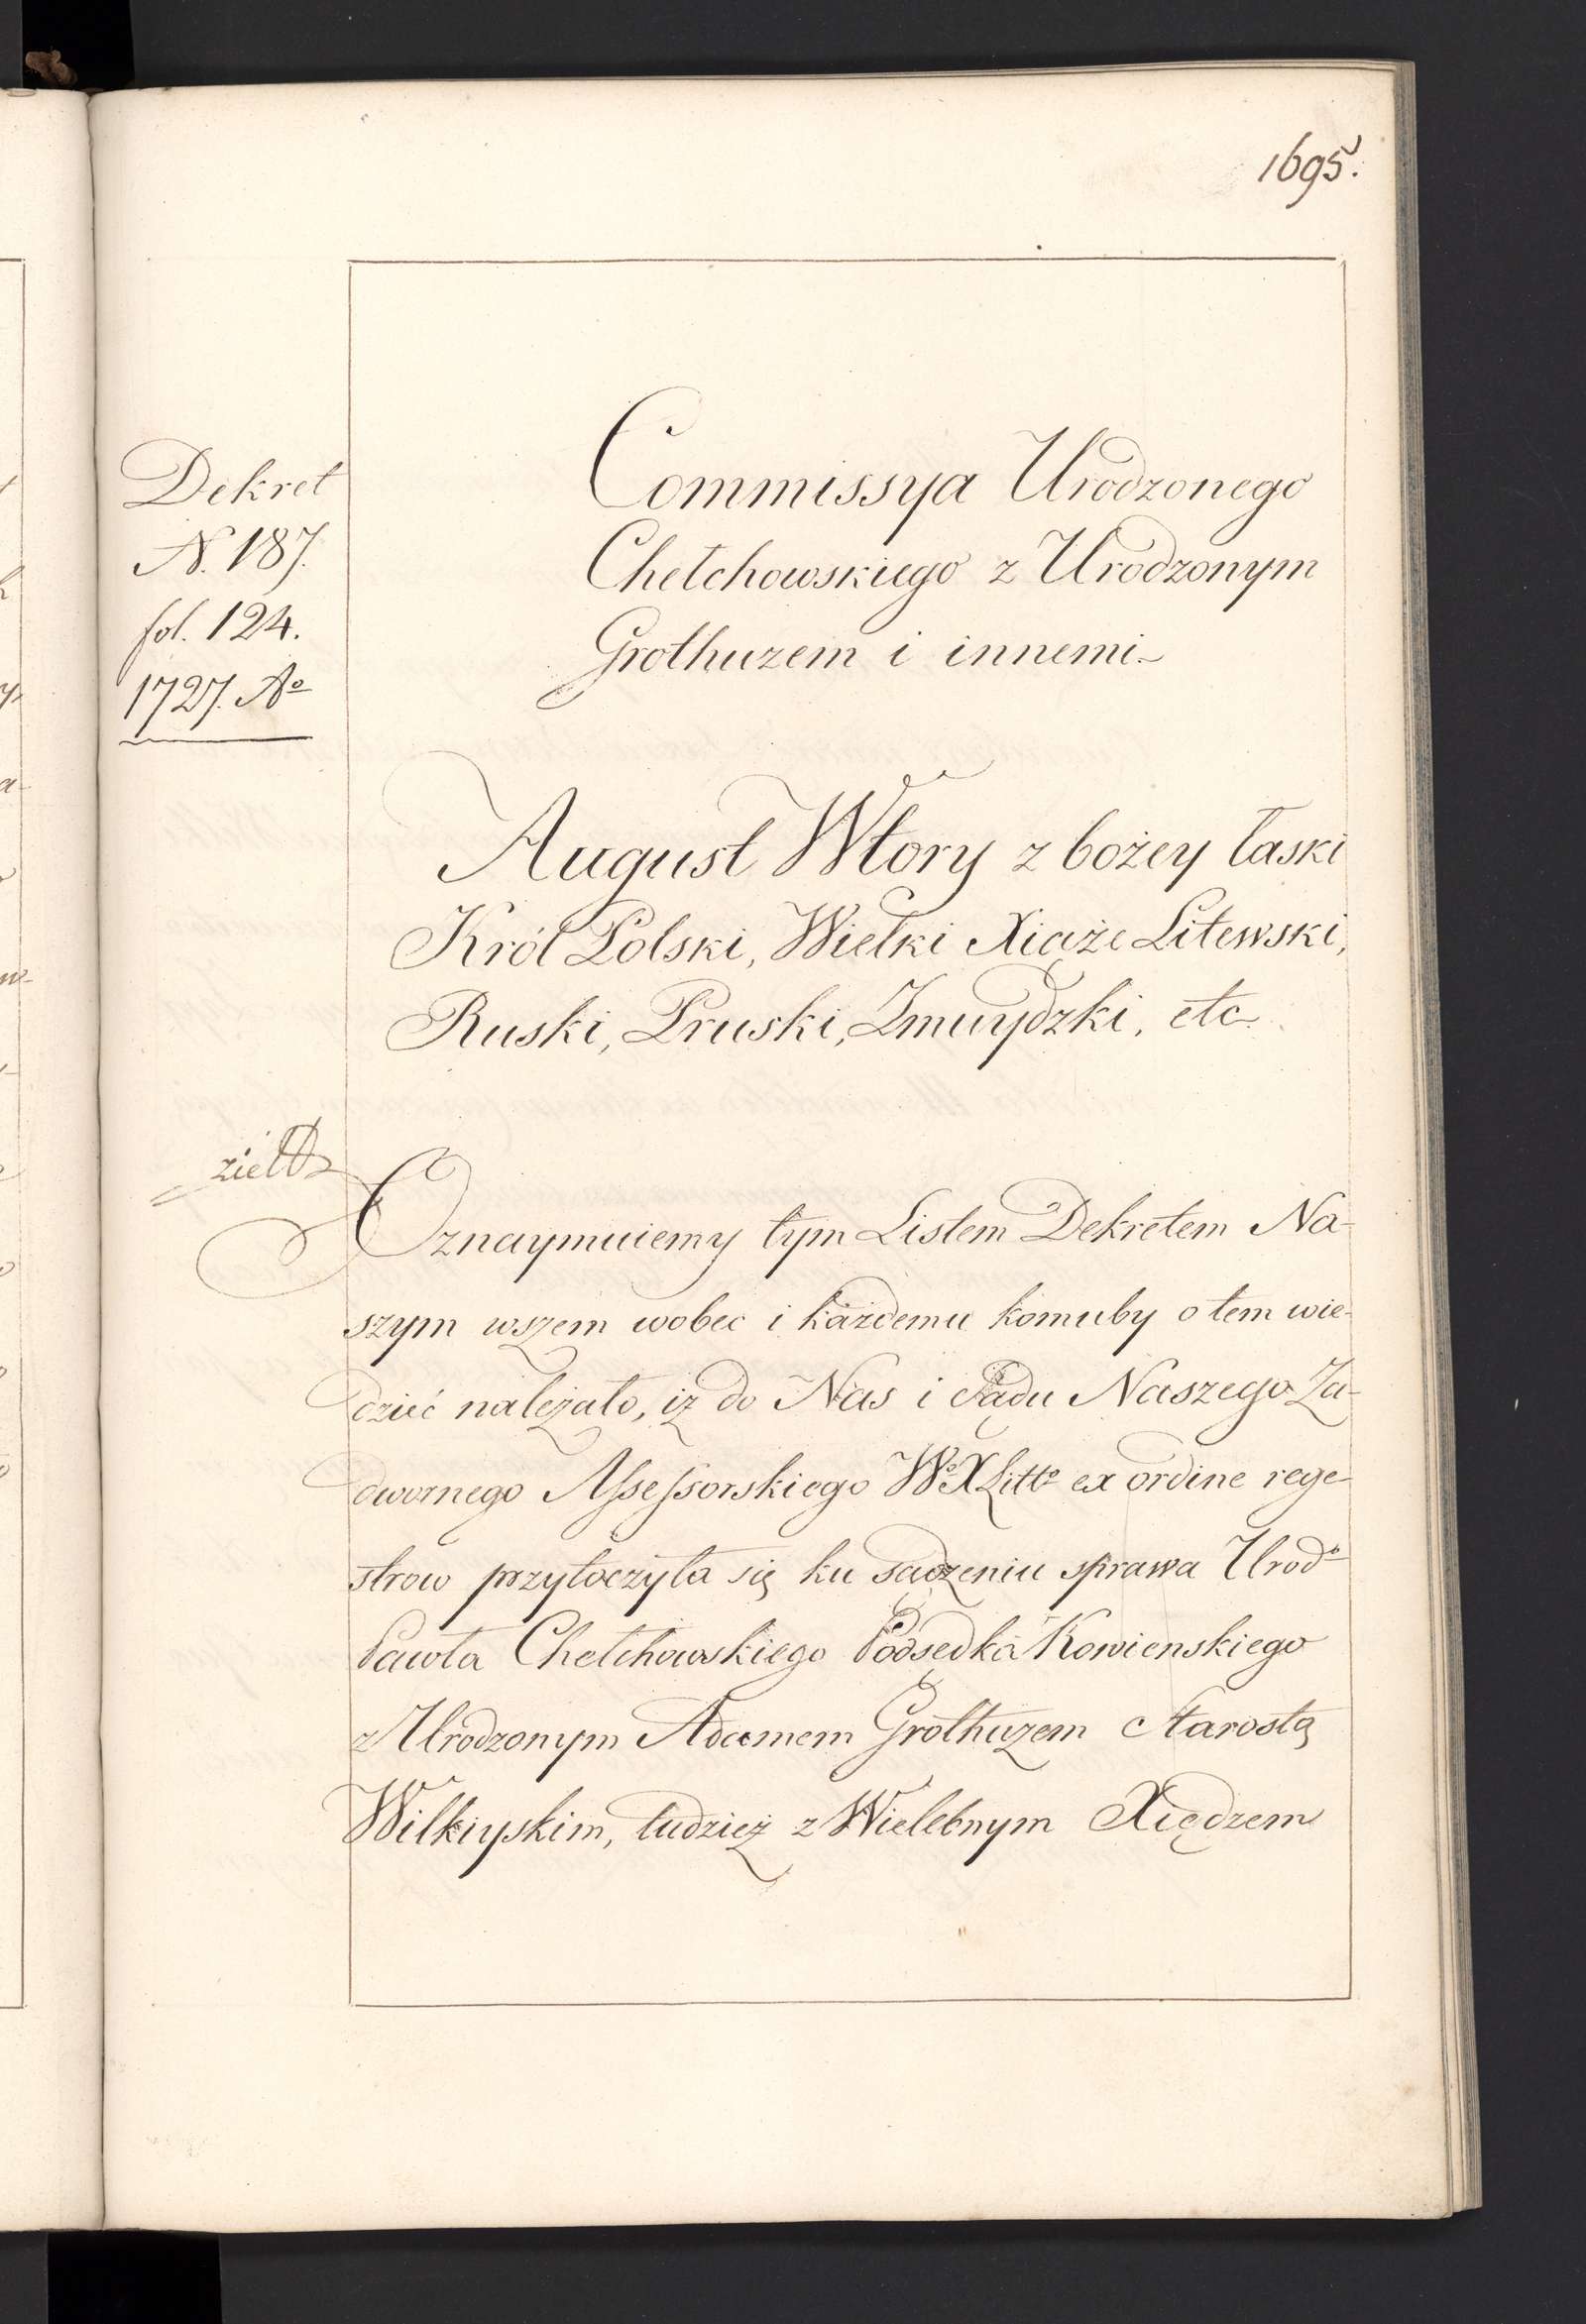 1695.
Dekret
N. 187.
fol. 124.
1727. Aº
Commissya Urodzonego
Chełchowskiego z Urodzonym
Grothuzem i innemi
August Wtory z bożey łaski
Król Polski, Wielki Xiąże Litewski,
Ruski, Pruski, Zmuydzki, etc
Oznaymuiemy tym Listem Dekretem Na-
szym wszem wobec i każdemu komuby o tem wie-
dzieć należało, iż do Nas i Sądu Naszego Za-
dwornego Assessorskiego Wº X Littº ex ordine rege-
strow przytoczyła się ku sądzeniu sprawa Urodº
Pawła Chełchowskiego Podsędka Kowienskiego
z Urodzonym Adamem Grothuzem Starostą
Wilkiyskim, tudzież z Wielebnym Xiędzem